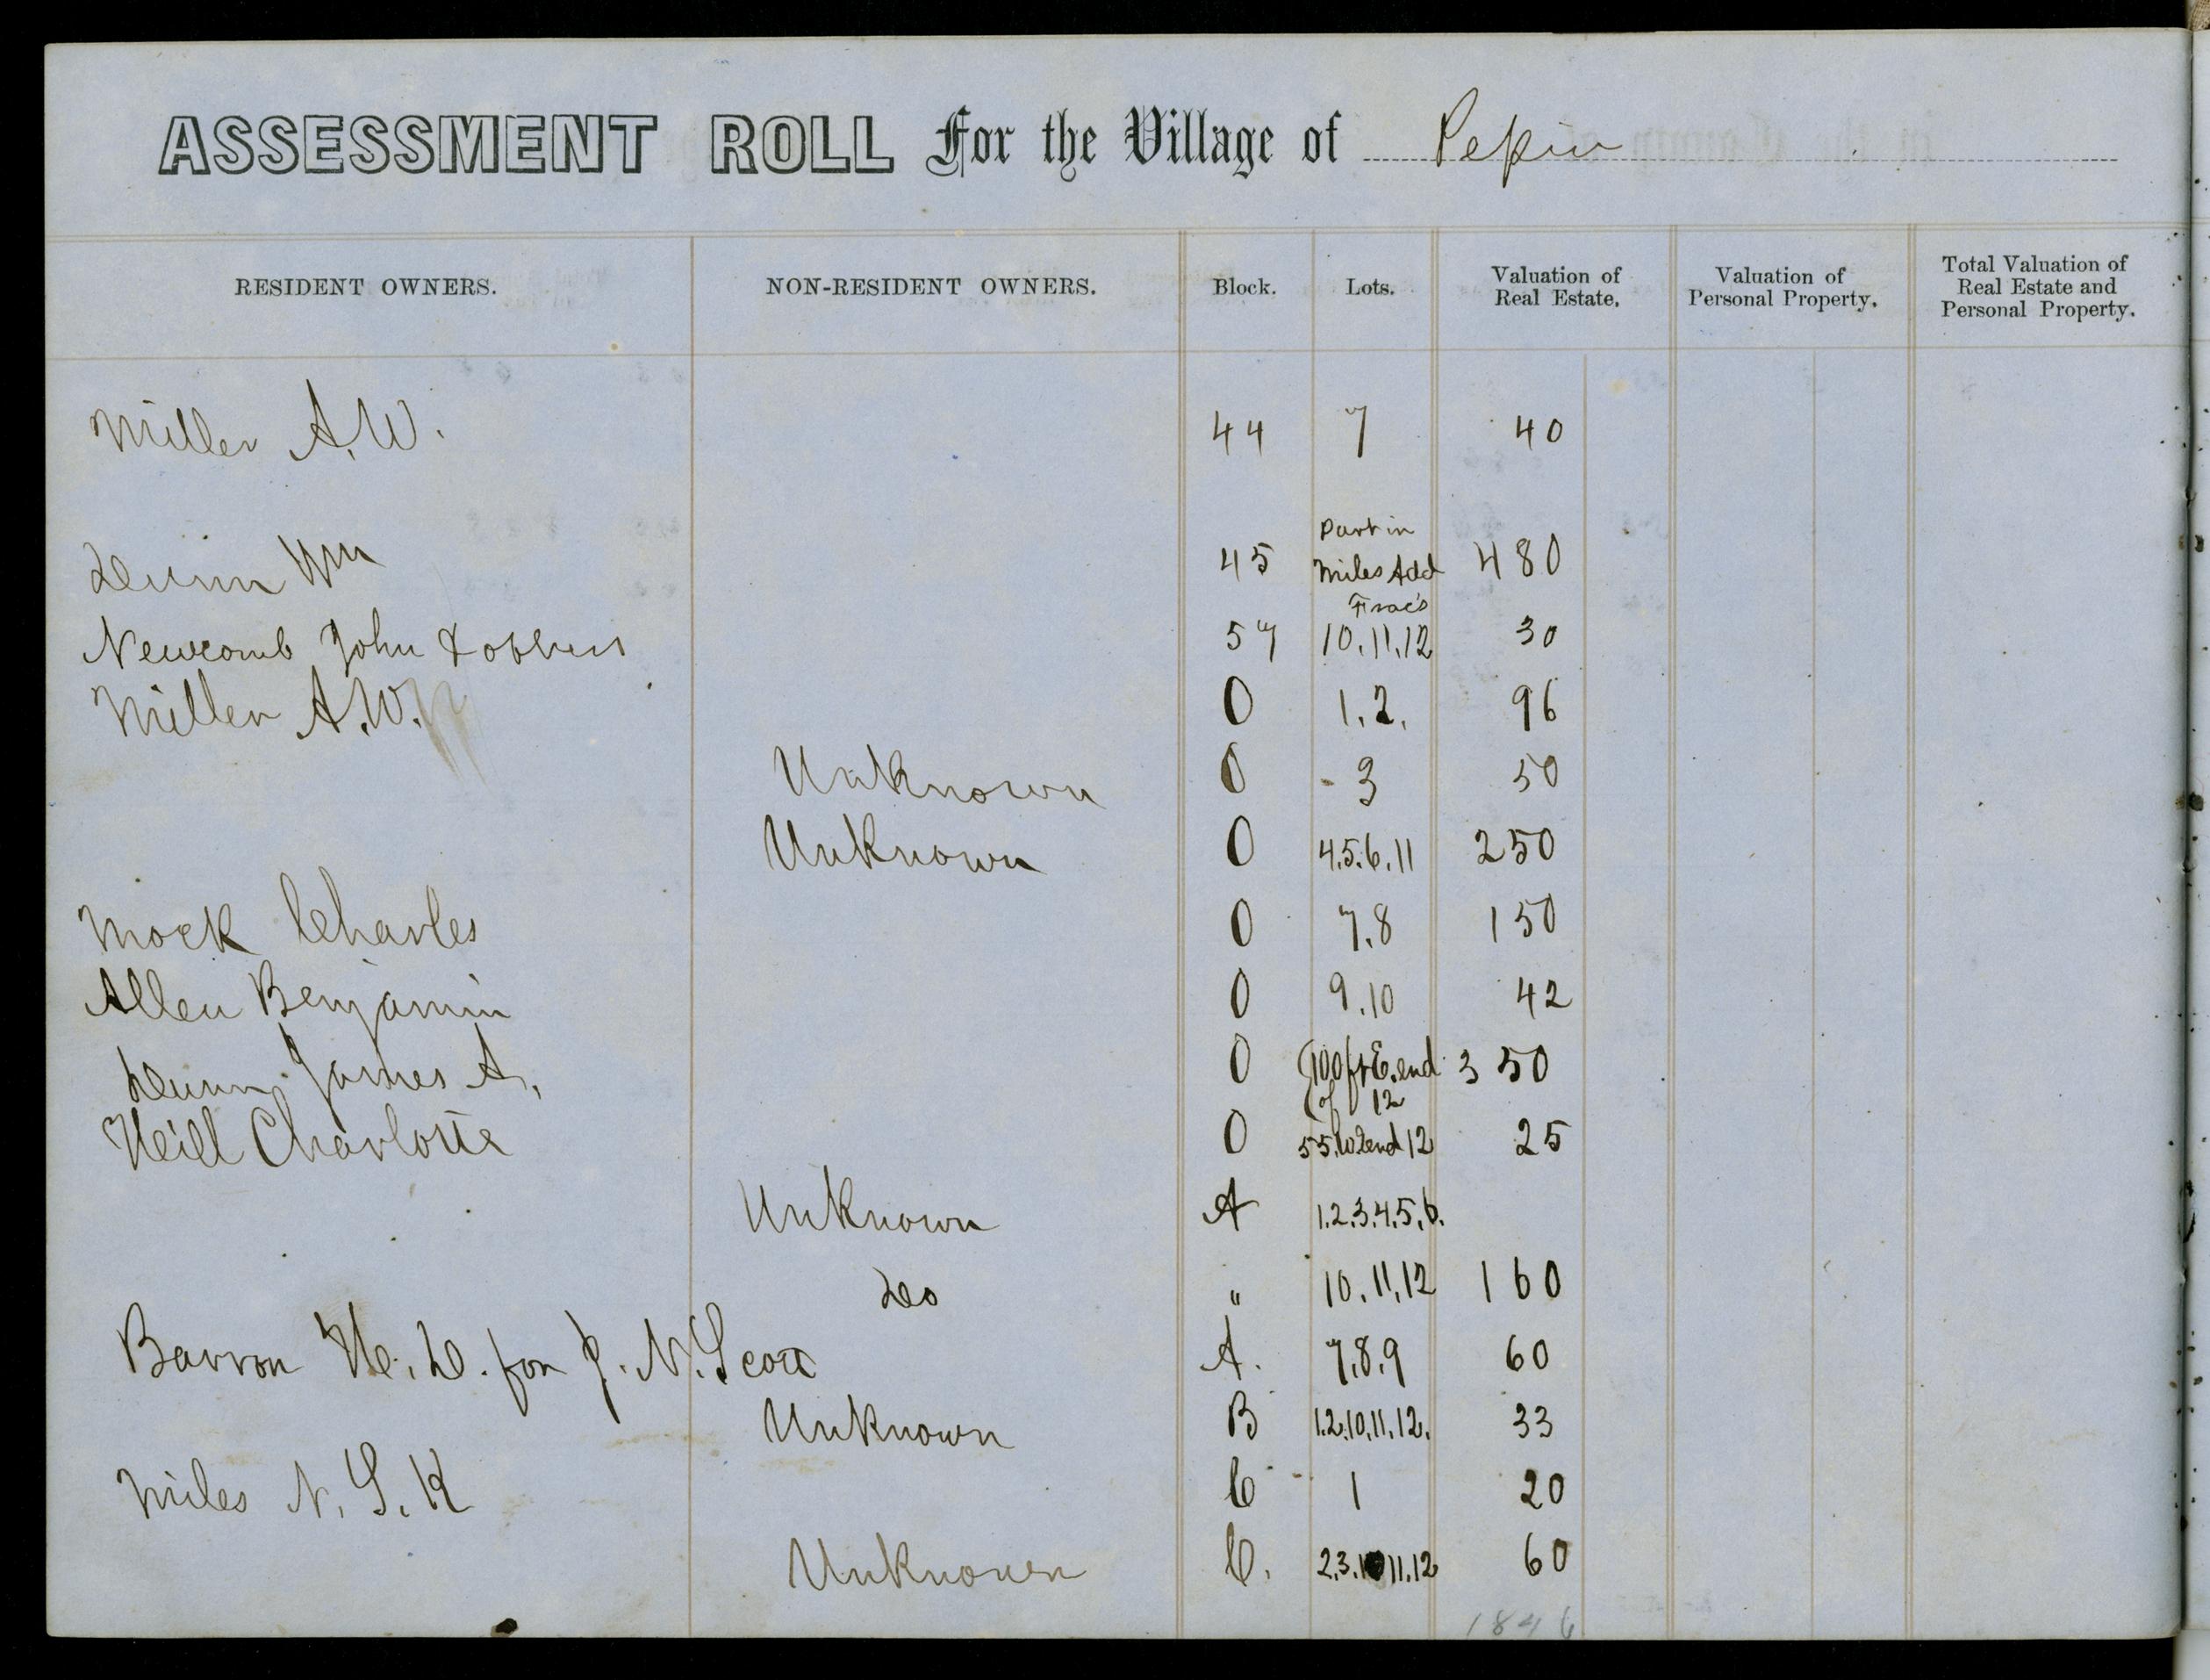 ASSESSMENT ROLL For the Village of Pepin
RESIDENT OWNERS. NON-RESIDENT OWNERS. Block. Lots. Valuation of Real Estate. Valuation of Personal Property. Total Valuation of Real Estate and Personal Property.
Miller A.W. 44 7 40
Dunn Wm 45 Part in Miles Add 480
Newcomb John & others 57 Frac's 10.11.12 30
Miller A.W. O 1.2. 96
Unknown O 3 50
Unknown O 4.5.6.11 250
Mock Charles O 7.8 150
Allen Benjamin O 9.10 42
Dunn James A. O (100 ft E. end of 12 350
Neill Charlotte O 55. W. end 12 25
Unknown A 1.2.3.4.5.6.
Do " 10.11.12 160
Barron H. D. for J. N. Scott A. 7.8.9 60
Unknown B 1.2.10.11.12. 33
Miles N. S. K C 1 20
Unknown C. 2.3.10 11.12 60
1846